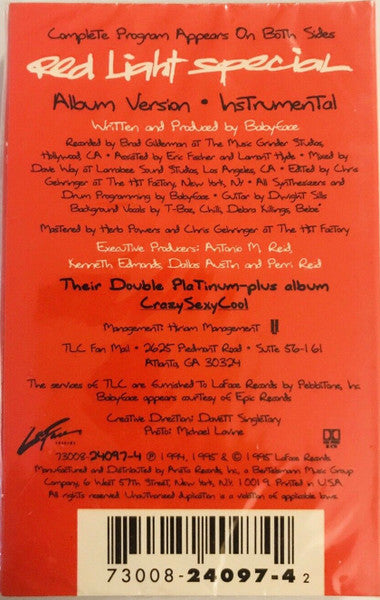 Complete Program Appears On Both Sides
Red Light Special
Album Version • Instrumental
Written and Produced by Babyface
Recorded by Brad Gilderman at The Music Grinder Studios,
Hollywood, CA • Assisted by Eric Fischer and Lamont Hyde • Mixed by
Dave Way at Larrabee Sound Studios, Los Angeles, CA • Edited by Chris
Gehringer at The Hit Factory, New York, NY • All Synthesizers and
Drum Programming by Babyface • Guitar by Dwight Sills
Background Vocals by T-Boz, Chilli, Debra Killings, Bebe'
Mastered by Herb Powers and Chris Gehringer at The Hit Factory
Executive Producers: Antonio M. Reid,
Kenneth Edmonds, Dallas Austin and Perri Reid
Their Double Platinum-plus album
CrazySexyCool
Management: Hiriam Management
TLC Fan Mail • 2625 Piedmont Road • Suite 56-161
Atlanta, GA 30324
The services of TLC are furnished to LaFace Records by Pebbitone, Inc.
Babyface appears courtesy of Epic Records
Creative Direction: Davett Singletary
Photo: Michael Lavine
LaFace
RECORDS
73008-24097-4 ℗ 1994, 1995 & © 1995 LaFace Records
Manufactured and Distributed by Arista Records, Inc. a Bertelsmann Music Group
Company, 6 West 57th Street, New York, N.Y. 10019. Printed in U.S.A.
All rights reserved. Unauthorized duplication is a violation of applicable laws.
73008-24097-4 2